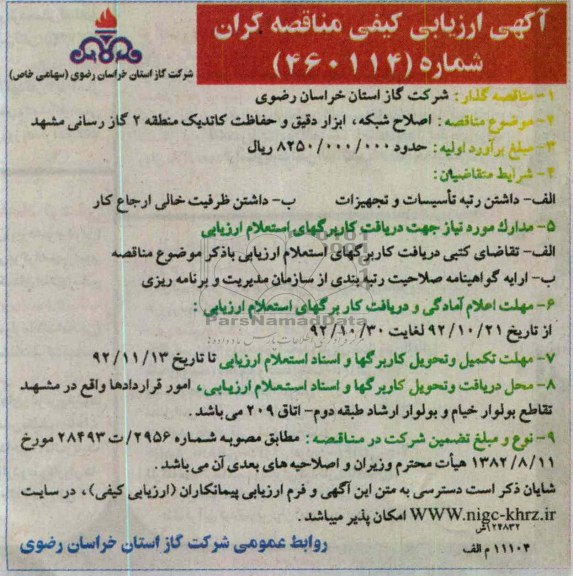 آگهی ارزیابی کیفی مناقصه گران
شماره (۴۶۰۱۱۴)
شرکت گاز استان خراسان رضوی (سهامی خاص)
۱- مناقصه گذار: شرکت گاز استان خراسان رضوی
۲- موضوع مناقصه: اصلاح شبکه، ابزار دقیق و حفاظت کاتدیک منطقه ۲ گاز رسانی مشهد
۳- مبلغ برآورد اولیه: حدود ۸۲۵۰/۰۰۰/۰۰۰ ریال
۴- شرایط متقاضیان:
الف- داشتن رتبه تأسیسات و تجهیزات ب- داشتن ظرفیت خالی ارجاع کار
۵- مدارک مورد نیاز جهت دریافت کاربرگهای استعلام ارزیابی
الف- تقاضای کتبی دریافت کاربرگهای استعلام ارزیابی باذکر موضوع مناقصه
ب- ارایه گواهینامه صلاحیت رتبه بندی از سازمان مدیریت و برنامه ریزی
۶- مهلت اعلام آمادگی و دریافت کار برگهای استعلام ارزیابی :
ParsNamadData
از تاریخ ۹۲/۱۰/۲۱ لغایت ۹۲/۱۰/۳۰
۷- مهلت تکمیل وتحویل کاربرگها و اسناد استعلام ارزیابی تا تاریخ ۹۲/۱۱/۱۳
۸- محل دریافت وتحویل کاربرگها و اسناد استعلام ارزیابی، امور قراردادها واقع در مشهد
تقاطع بولوار خیام و بولوار ارشاد طبقه دوم- اتاق ۲۰۹ می باشد.
۹- نوع و مبلغ تضمین شرکت در مناقصه: مطابق مصوبه شماره ۲۹۵۶/ت ۲۸۴۹۳ مورخ
۱۳۸۲/۸/۱۱ هیأت محترم وزیران و اصلاحیه های بعدی آن می باشد.
شایان ذکر است دسترسی به متن این آگهی و فرم ارزیابی پیمانکاران (ارزیابی کیفی)، در سایت
WWW.nigc-khrz.ir امکان پذیر میباشد.
۱۱۱۰۴ م الف
روابط عمومی شرکت گاز استان خراسان رضوی